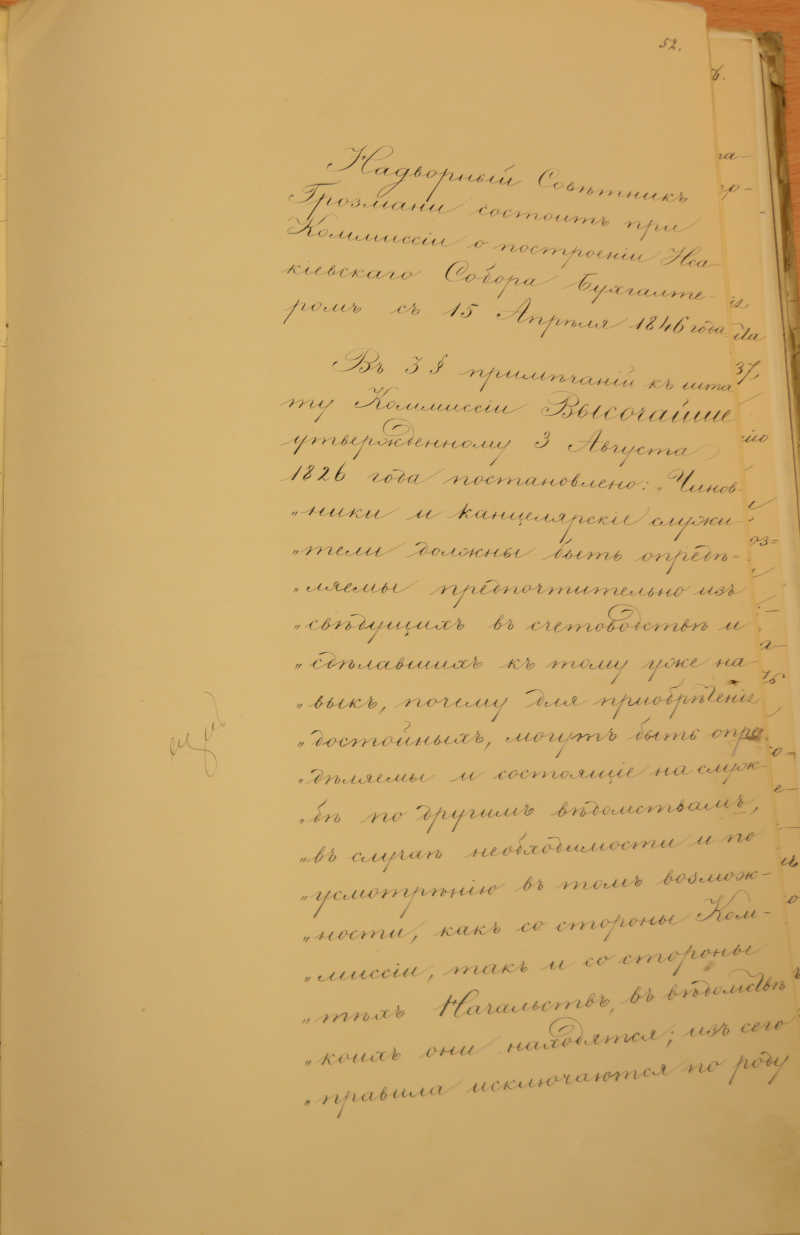 52.
Надворный Совѣтникъ
Грозмани состоитъ при
Коммиссіи о построеніи Иса-
кіевскаго Собора Бухгалте-
ромъ съ 15 Апрѣля 1846 года.
Въ 3 § примѣчаній къ шта-
ту Коммиссіи Высочайше
утвержденному 3 Августа
1826 года постановлено: „Чинов-
„ники и канцелярскіе служи-
„тели должны быть опредѣ-
„ляемы предпочтительно изъ
„свѣдущихъ въ счетоводствѣ и
„сдѣлавшихъ къ тому уже на-
„выкъ, почему для пріобрѣтенія
„достойныхъ, могутъ быть опре-
„дѣляемы и состоящіе на служ-
„бѣ по другимъ вѣдомствамъ,
„въ случаѣ необходимости и по
„усмотрѣнію въ томъ возмож-
„ности, какъ со стороны Ком-
„миссіи, такъ и со стороны
„тѣхъ Начальствъ, въ вѣдомствѣ
„коихъ они находятся; изъ сего
„правила исключаются по роду